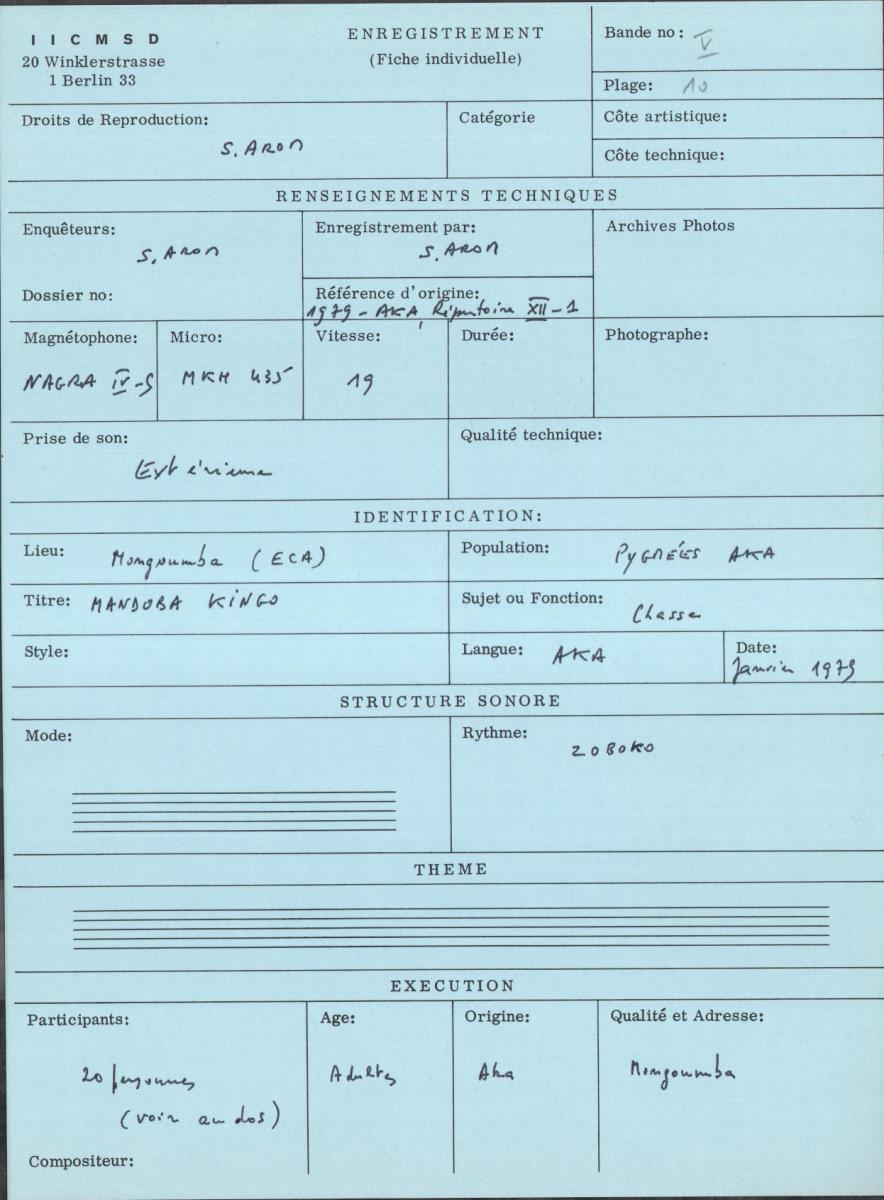 I I C M S D
20 Winklerstrasse
1 Berlin 33
ENREGISTREMENT
(Fiche individuelle)
Bande no: V
Plage: 10
Droits de Reproduction:
S. AROM
Catégorie
Côte artistique:
Côte technique:
RENSEIGNEMENTS TECHNIQUES
Enquêteurs:
S. AROM
Dossier no:
Enregistrement par:
S. AROM
Référence d'origine:
1979 - AKA, Répertoire XII - 1
Archives Photos
Magnétophone:
NAGRA IV-S
Micro:
MKH 435
Vitesse:
19
Durée:
Photographe:
Prise de son:
Extérieure
Qualité technique:
IDENTIFICATION:
Lieu: Mongoumba (ECA)
Population: PYGMÉES AKA
Titre: MANDOBA KINGO
Sujet ou Fonction:
Chasse
Style:
Langue: AKA
Date:
Janvier 1979
STRUCTURE SONORE
Mode:
Rythme:
ZOBOKO
THEME
EXECUTION
Participants:
20 personnes
(voir au dos)
Age:
Adultes
Origine:
Aka
Qualité et Adresse:
Mongoumba
Compositeur: